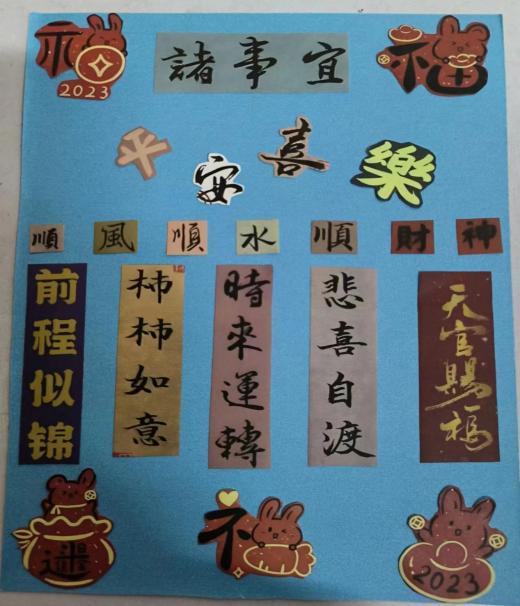 2023
諸事宜
福
平安喜樂
順風順水順財神
前程似锦
柿柿如意
時來運轉
悲喜自渡
天官賜福
2023